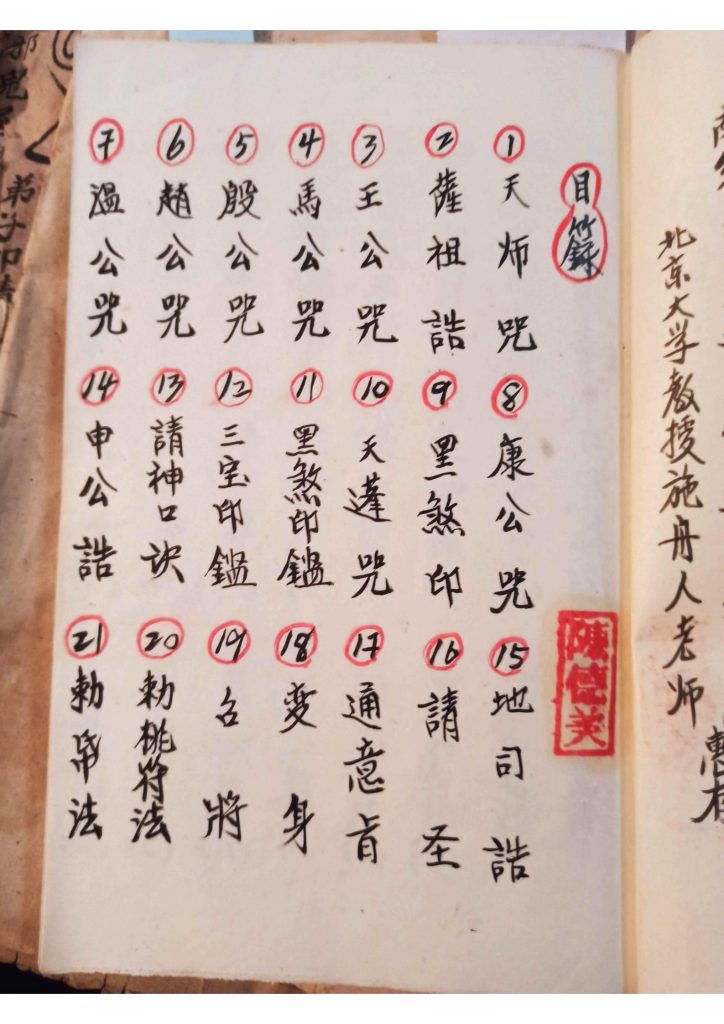 北京大学教授施舟人老师
惠存
目籙
① 天师咒
② 薩祖誥
③ 王公咒
④ 馬公咒
⑤ 殷公咒
⑥ 趙公咒
⑦ 溫公咒
⑧ 康公咒
⑨ 黑煞印
⑩ 天蓬咒
⑪ 黑煞印鑑
⑫ 三宝印鑑
⑬ 請神口訣
⑭ 申公誥
⑮ 地司誥
⑯ 請圣
⑰ 通意旨
⑱ 变身
⑲ 召將
⑳ 勅桃符法
㉑ 勅法
弟子叩請
邪鬼